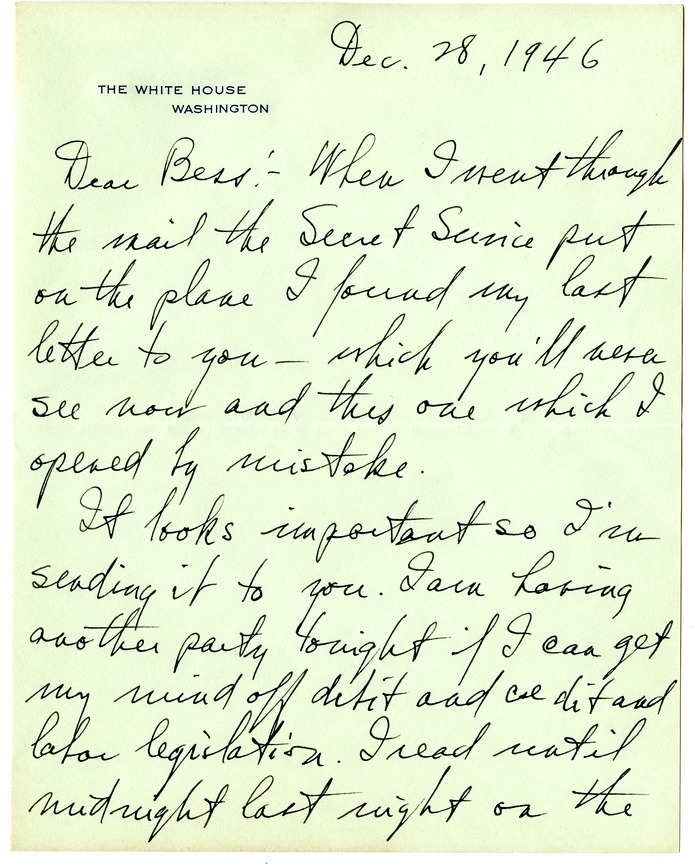 Dec. 28, 1946
THE WHITE HOUSE
WASHINGTON
Dear Bess:- When I went through
the mail the Secret Service put
on the plane I found my last
letter to you - which you'll never
see now and this one which I
opened by mistake.
It looks important so I'm
sending it to you. I am having
another party tonight if I can get
my mind off debit and credit and
labor legislation. I read until
midnight last night on the